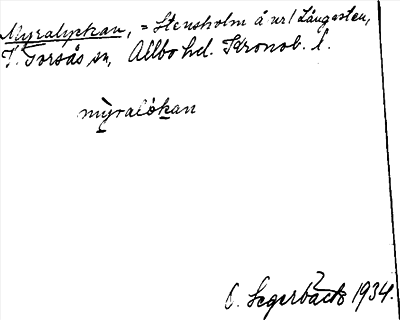 Myralyckan, = Stensholm å ur / Långasten,
T. Torsås sn, Allbo hd. Kronob. l.
myralókan
C. Segerbäck 1934.